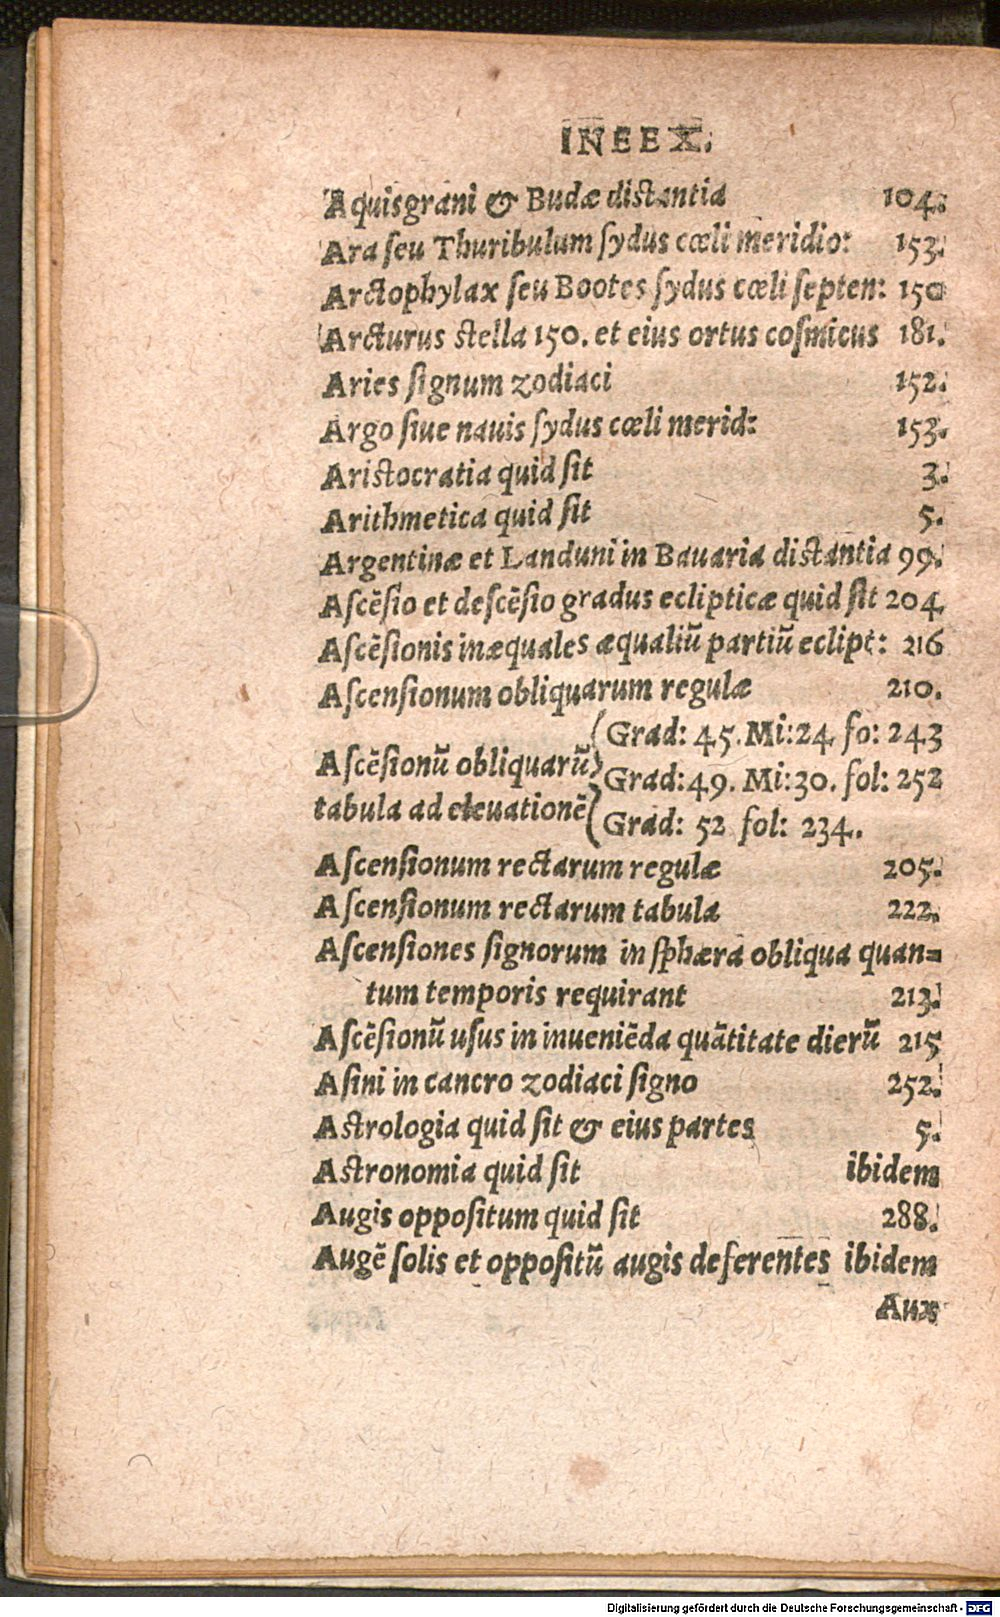 INEEX.
Aquisgrani & Budæ distantia 104.
Ara ſeu Thuribulum ſydus cœli meridio: 153.
Arctophylax ſeu Bootes ſydus cœli ſepten: 150
Arcturus stella 150. et eius ortus coſmicus 181.
Aries ſignum zodiaci 152.
Argo ſiue nauis ſydus cœli merid: 153.
Aristocratia quid ſit 3.
Arithmetica quid ſit 5.
Argentinæ et Landuni in Bauaria distantia 99.
Aſcēſio et deſcēſio gradus eclipticæ quid ſit 204
Aſcēſionis inæquales æqualiū partiū eclipt: 216
Aſcenſionum obliquarum regulæ 210.
Aſcēſionū obliquarū tabula ad eleuationē
Grad: 45. Mi:24 fo: 243
Grad:49. Mi:30. fol: 252
Grad: 52 fol: 234.
Aſcenſionum rectarum regulæ 205.
Aſcenſionum rectarum tabula 222.
Aſcenſiones ſignorum in ſphæra obliqua quan=
tum temporis requirant 213.
Aſcēſionū uſus in inueniēda quātitate dierū 215
Aſini in cancro zodiaci ſigno 252.
Astrologia quid ſit & eius partes 5.
Astronomia quid ſit ibidem
Augis oppoſitum quid ſit 288.
Augē ſolis et oppoſitū augis deferentes ibidem
Aux
Digitalisierung gefördert durch die Deutsche Forschungsgemeinschaft - DFG